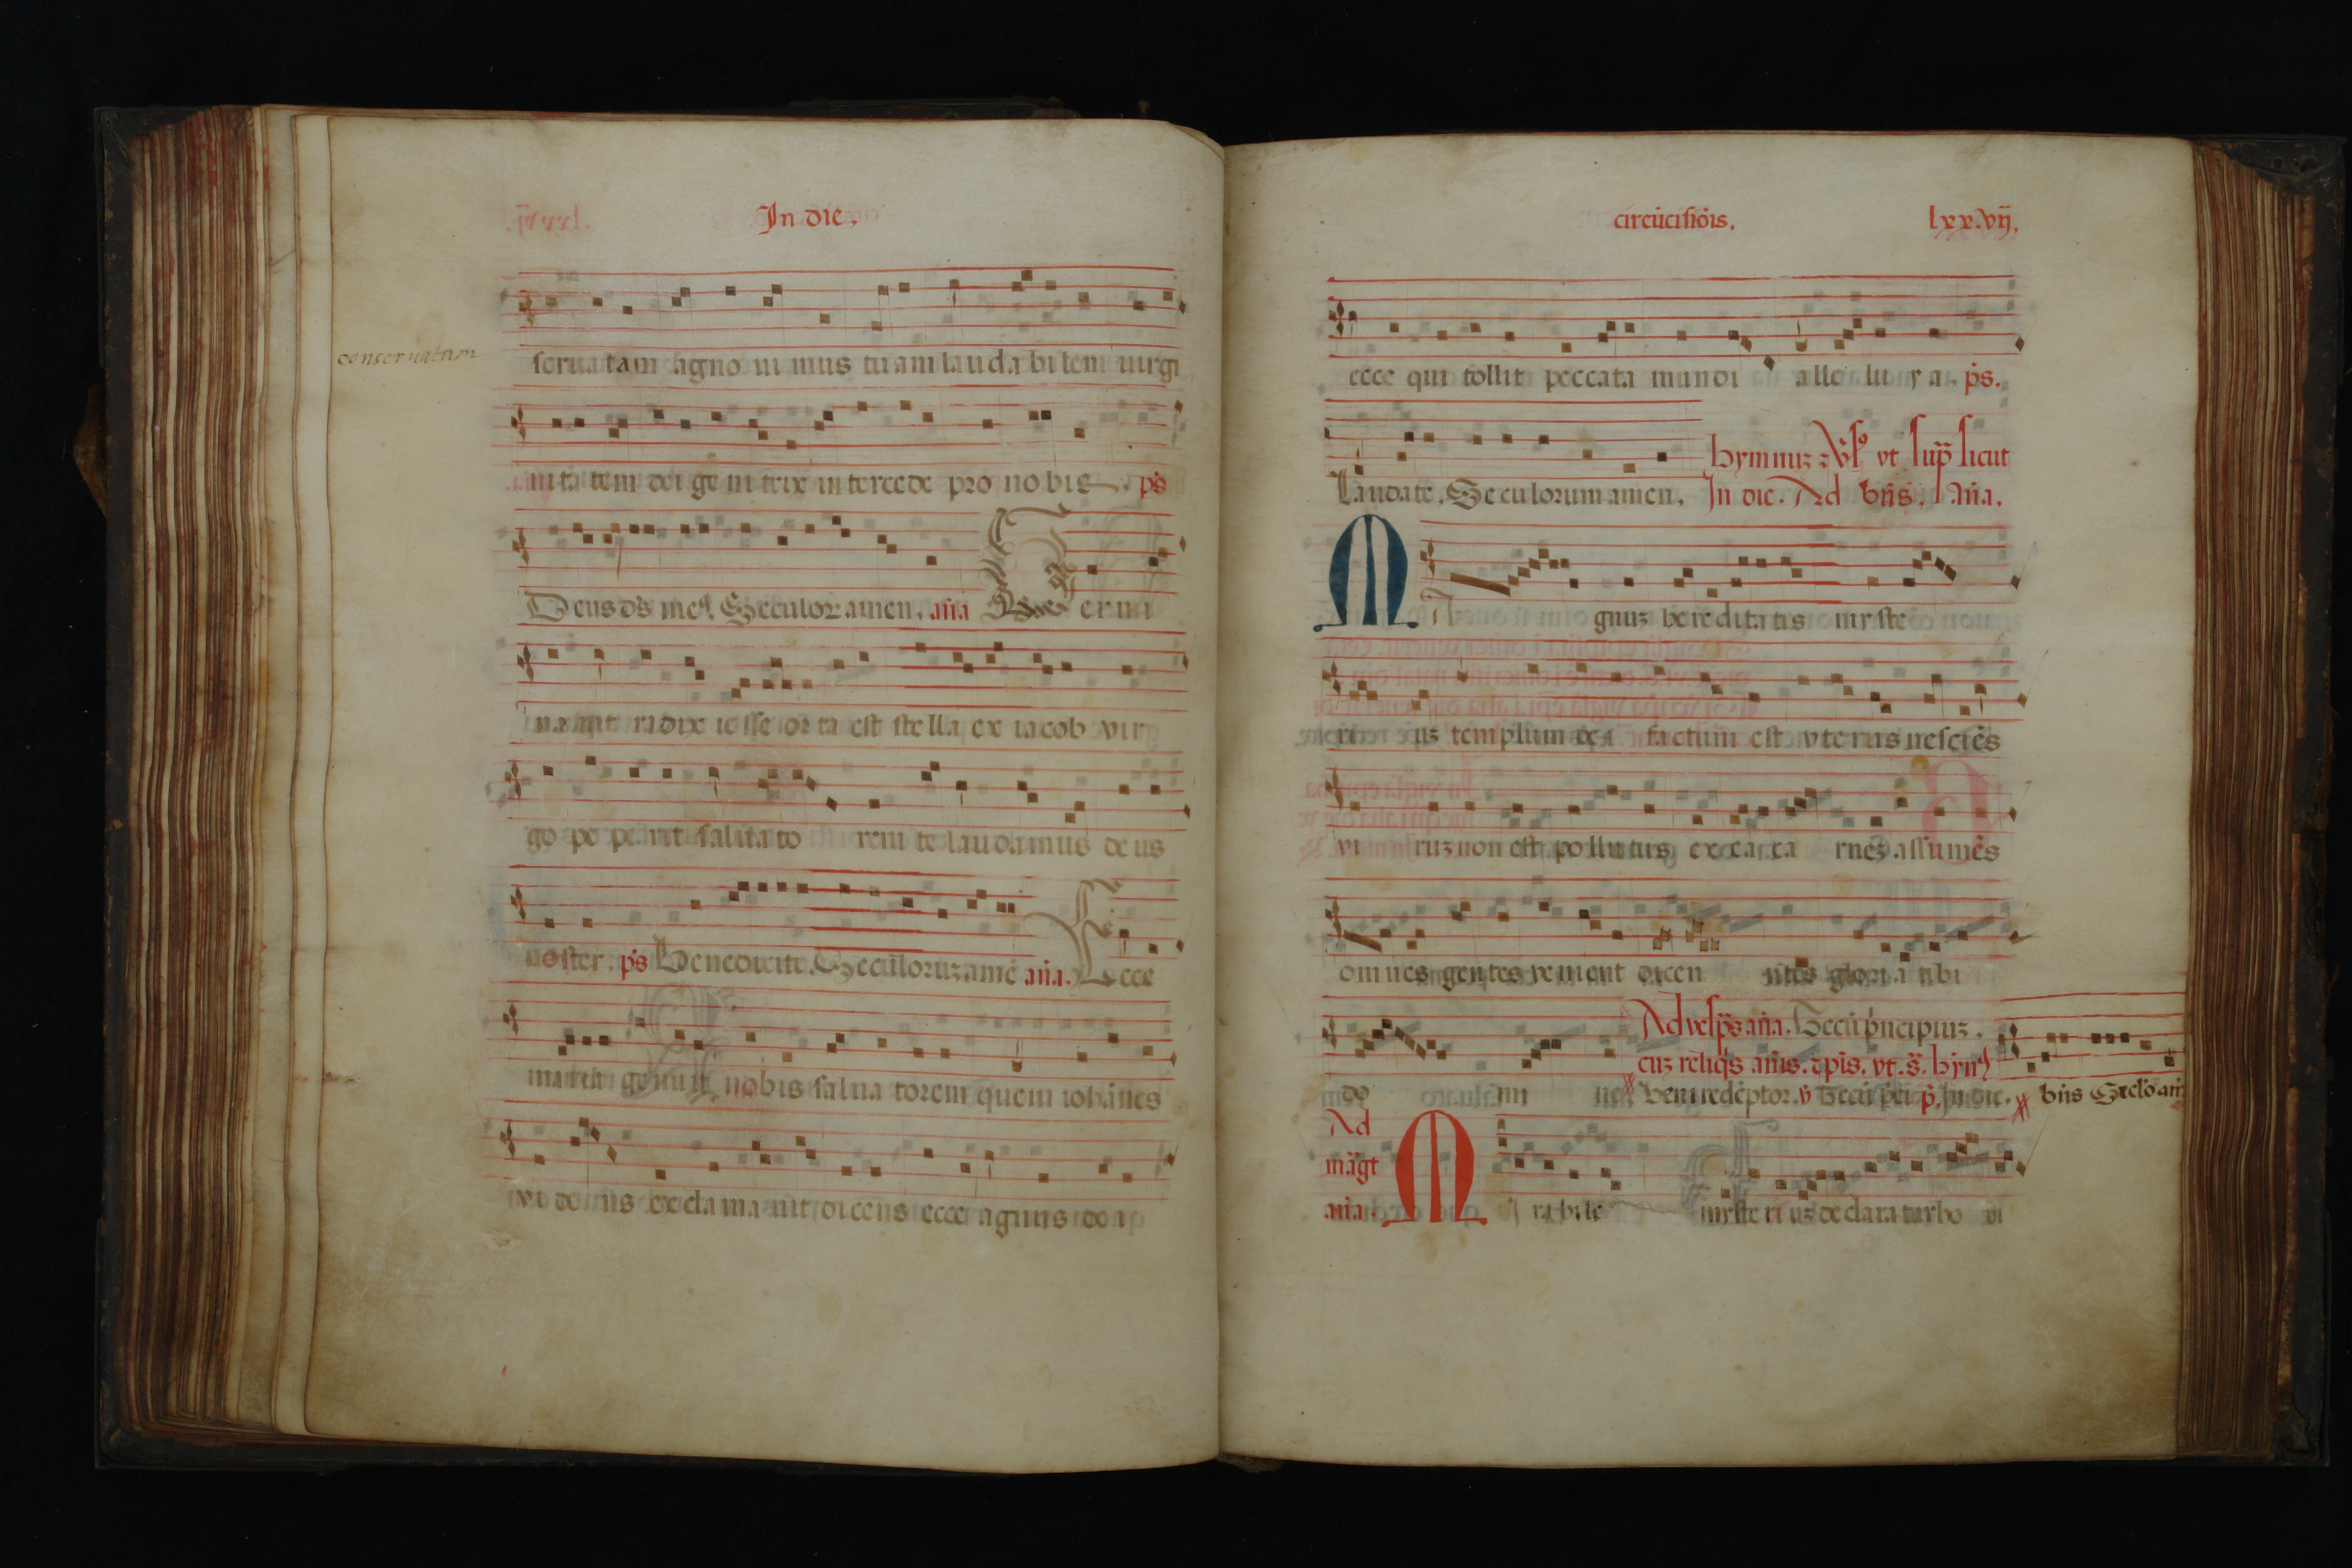 In die.
conseruatam
seruatam agno ui mus tuam lau da bi lem uirgi
ni ta tem dei ge ni trix in tercede pro no bis. ps
Deus ds me9. Seculor amen. ana Ger mi
na uit radix ie sse or ta est ste lla ex iacob vir
go pe pe rit saluato rem te laudamus de us
noster. ps Benedicite. Seculoruz amē ana. Ecce
maria genuit nobis salua torem quem iohānes
vi de ns excla ma uit dicens ecce agnus de i
circūcisiōis. lxx.vij.
ecce qui tollit peccata mundi alle lu y a. ps.
Laudate. Seculorum amen. hymnuz z Vs9 vt sup sicut
In die. Ad bñs. Aña.
Ma gnuz he re dita tis my ste
ri uz templum de i factum est vte rus nesciēs
vi ruz non est pollutus ex ea ca rnez assumēs
omnes gentes venient dicen ntes glori a tibi
Ad vesps aña. Tecū principiuz.
cuz reliqs añis. z pis. vt. s. hyn9
do mi ne Veni redēptor. v Tecū pri p. In die. bñs Seclō am
Ad
magt
aña. Mi ra bi le myste ri uz de clara tur ho di